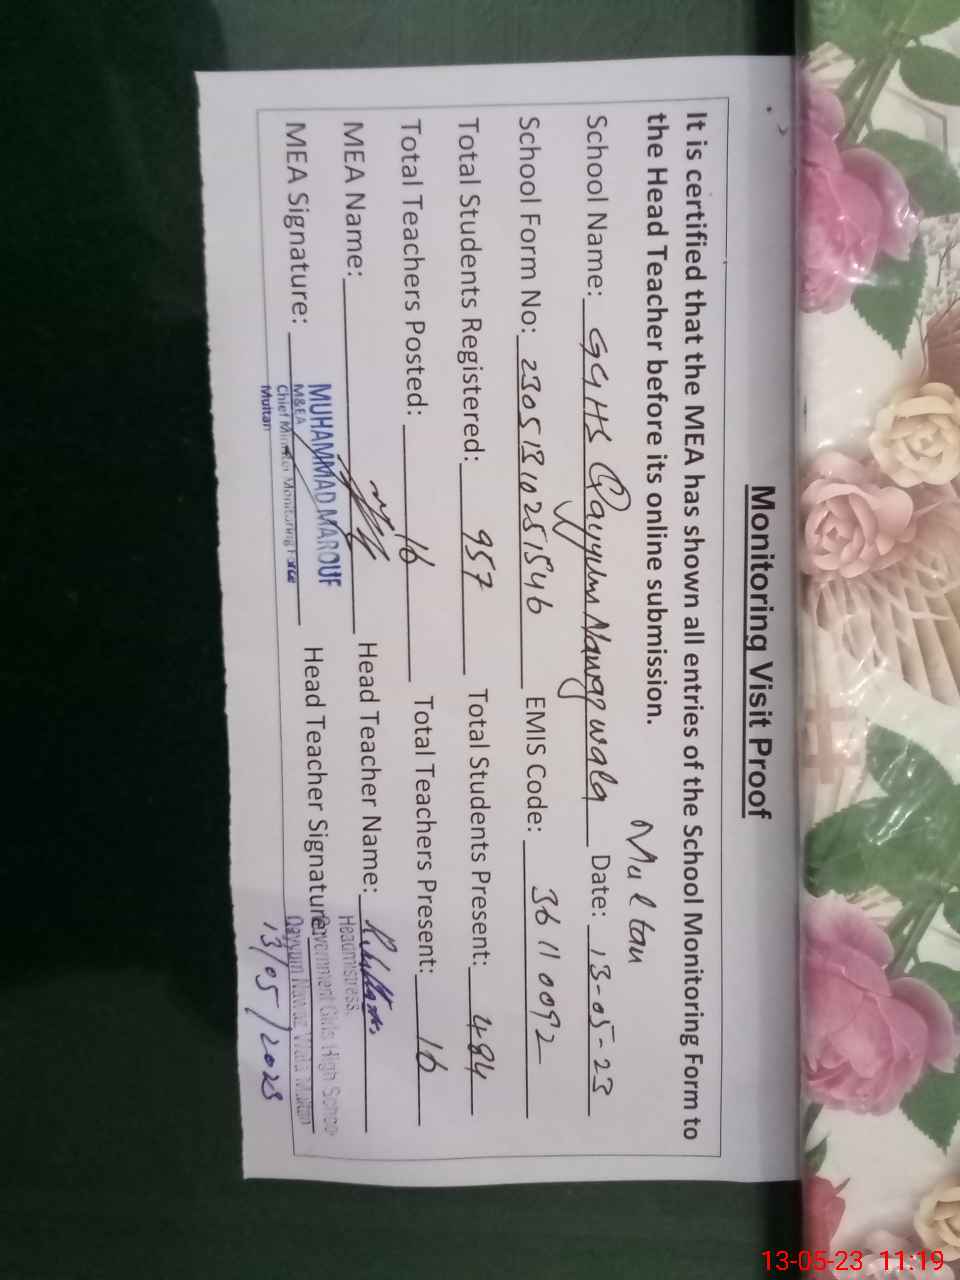 Monitoring Visit Proof
It is certified that the MEA has shown all entries of the School Monitoring Form to
the Head Teacher before its online submission.
Multan
School Name: GGHS Qayyum Nawaz wala Date: 13-05-23
School Form No: 23051310251546 EMIS Code: 36110092
Total Students Registered: 957 Total Students Present: 484
Total Teachers Posted: 16 Total Teachers Present: 16
MEA Name: Head Teacher Name:
MUHAMMAD MAROUF
M&EA
Chief Minister Monitoring Force
Multan
MEA Signature: Head Teacher Signature:
Headmistress,
Government Girls High School
Qayyum Nawaz Wala Multan
13/05/2023
13-05-23 11:19